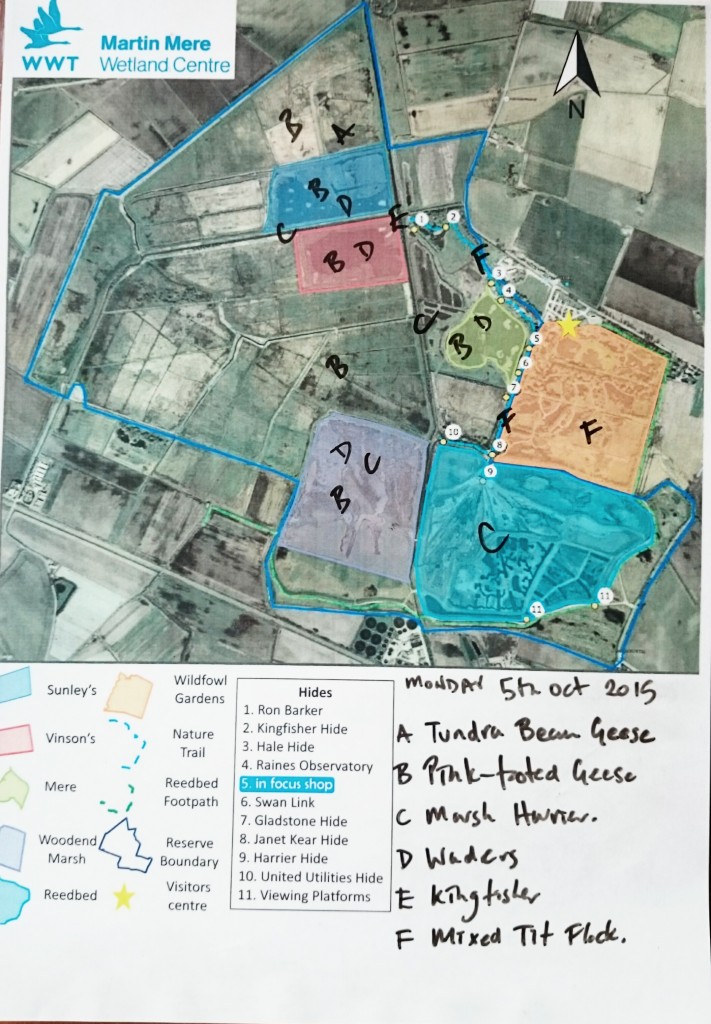 WWT
Martin Mere
Wetland Centre
B A
N
B
D
E
1
2
C
B D
F
3
4
C
D
B
5
6
B
7
F
F
10
8
9
D C
B
C
11
11
Sunley's
Wildfowl
Gardens
Vinson's
Nature
Trail
Mere
Reedbed
Footpath
Woodend
Marsh
Reserve
Boundary
Reedbed
Visitors
centre
Hides
1. Ron Barker
2. Kingfisher Hide
3. Hale Hide
4. Raines Observatory
5. in focus shop
6. Swan Link
7. Gladstone Hide
8. Janet Kear Hide
9. Harrier Hide
10. United Utilities Hide
11. Viewing Platforms
MONDAY 5th Oct 2015
A Tundra Bean Geese
B Pink-footed Geese
C Marsh Harrier.
D Waders
E Kingfisher
F Mixed Tit Flock.